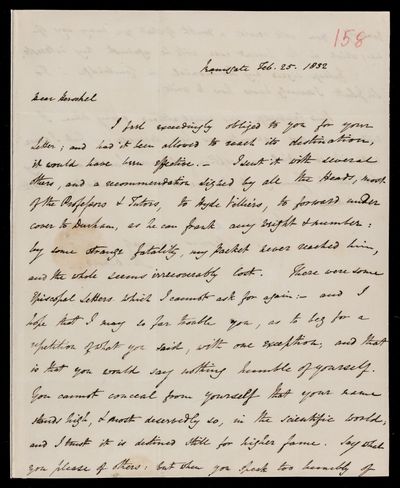 158
Ramsgate Feb. 25. 1832
Dear Herschel
I feel exceedingly obliged to you for your
letter; and had it been allowed to reach its destination,
it would have been effective. — I sent it with several
others, and a recommendation signed by all the Heads, most
of the Professors & Tutors, to Hyde Villiers, to forward under
cover to Durham, as he can frank any weight & number:
by some strange fatality, my packet never reached him,
and the whole seems irrecoverably lost. There were some
Episcopal letters which I cannot ask for again: — and I
hope that I may so far trouble you, as to beg for a
repetition of what you said, with one exception; and that
is that you would say nothing humble of yourself.
You cannot conceal from yourself that your name
stands high, & most deservedly so, in the scientific world,
and I trust it is destined still for higher fame. Say what
you please of others: but when you speak too humbly of